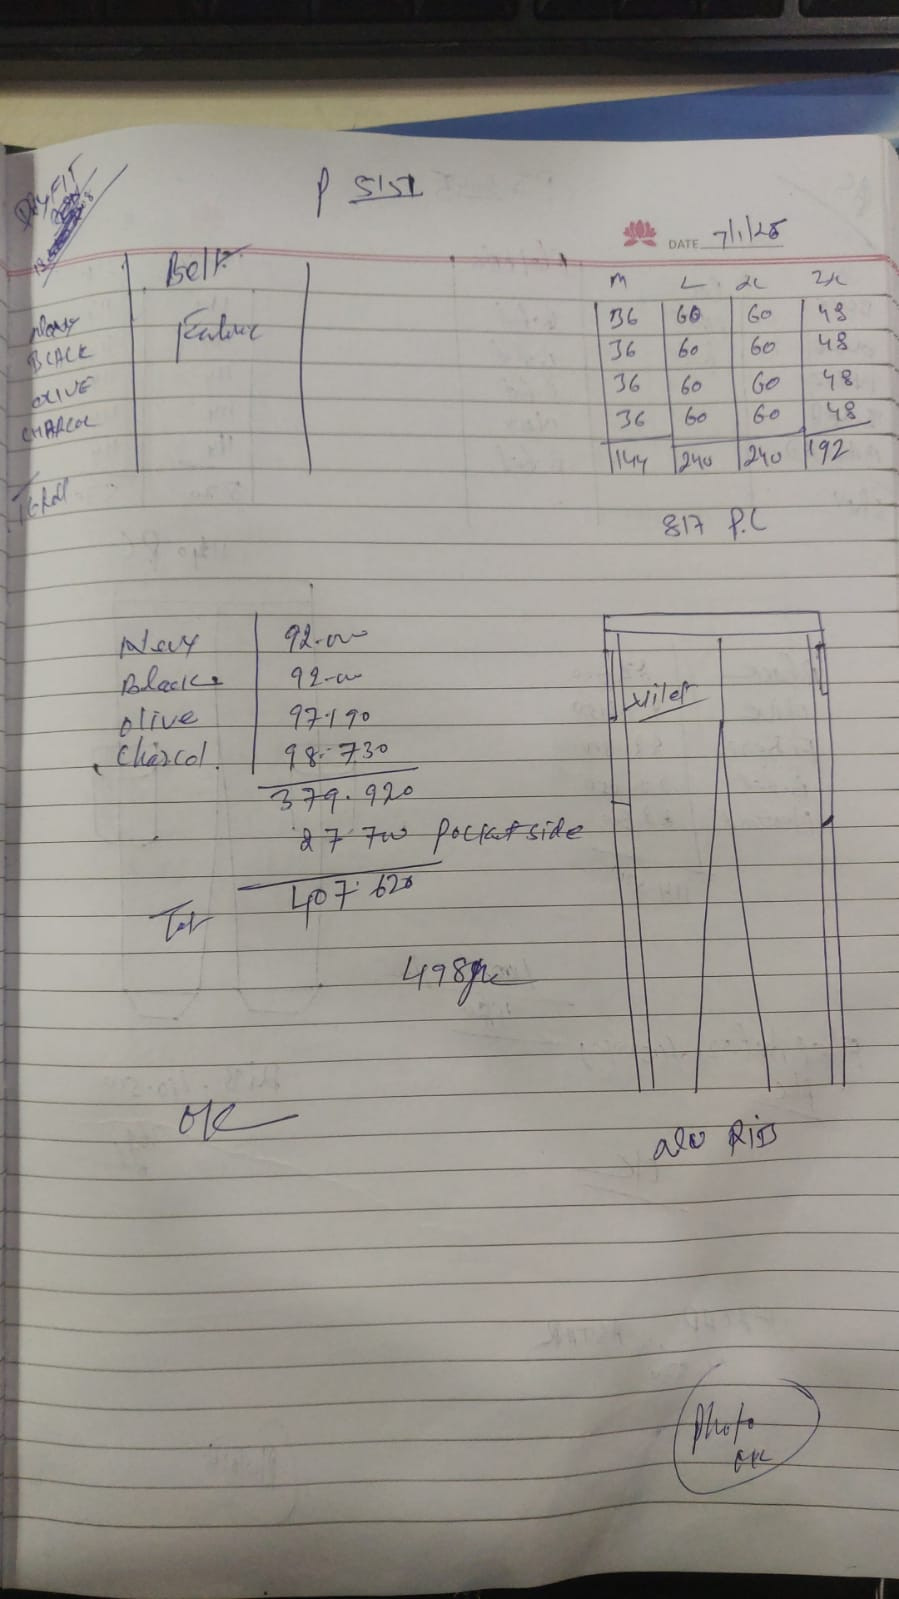 DRYFIT
P 5151
DATE 7/1/25
Belt M L XL 2XL
Navy Fabric 36 60 60 48
BLACK 36 60 60 48
OLIVE 36 60 60 48
CHARCOL 36 60 60 48
Total 144 240 240 192
817 P.C
Navy 92.00
Black 92.00
Olive 97.190
Charcol 98.730
379.920
27.700 Pocket side
Tot 407.620
498
OK
RIB
Photo
OK